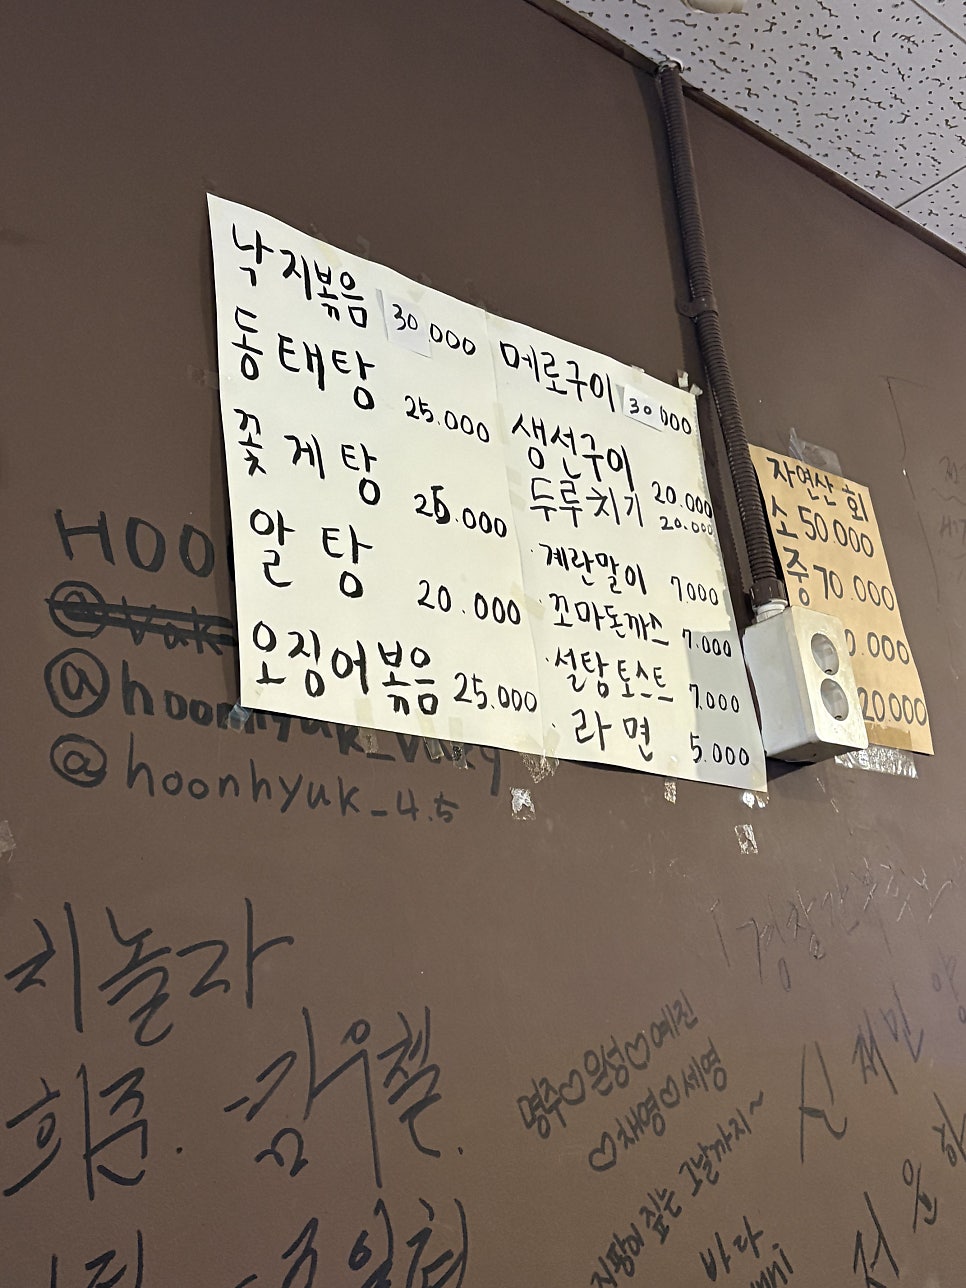 낙지볶음 30.000
동태탕 25.000
꽃게탕 25.000
알탕 20.000
오징어볶음 25.000
메로구이 30.000
생선구이 20.000
두루치기 20.000
·계란말이 7.000
·꼬마돈까스 7.000
·설탕토스트 7.000
·라면 5.000
자연산 회
소 50.000
중 70.000
0.000
20.000
HOO
@hoonhyuk_
@hoonhyuk_4.5
치놀자
희준.
명주♡은성♡예진
♡채영♡세영
지팡이 짚는 그날까지~
바다
신재민